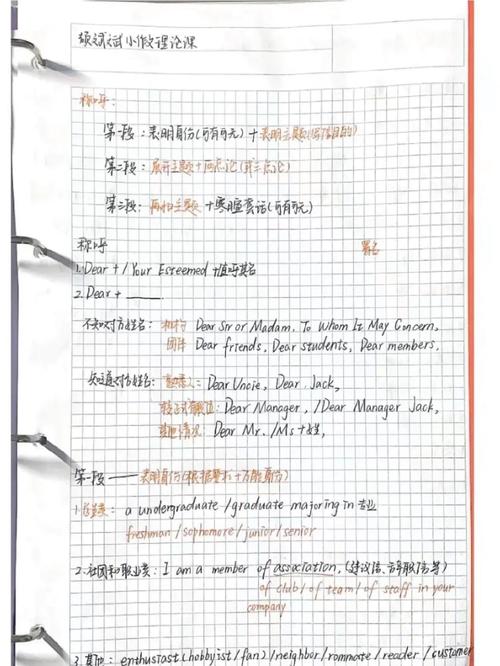 小作文理论课
称呼：
第一段：表明身份(可有可无)+表明主题(写信目的)
第二段：展开主题+两点论(或三点论)
第三段：再扣主题+寒暄套话(可有可无)
署名
称呼
1. Dear + / Your Esteemed +直呼其名
2. Dear + ____.
不知对方姓名：机构 Dear Sir or Madam, To Whom It May Concern,
团体 Dear friends, Dear students, Dear members,
知道对方姓名：熟悉人：Dear Uncle, Dear Jack,
较正式/职位：Dear Manager, /Dear Manager Jack,
其他情况：Dear Mr. /Ms+姓,
第一段——表明身份(根据要求+万能身份)
1. 学生类：a undergraduate /graduate majoring in 专业
freshman / sophomore / junior / senior
2. 社团和职业类：I am a member of association, (建议信、辞职信等)
of club / of team / of staff in your
company
3. 其他：enthusiast (hobbyist / fan) / neighbor / rommate / reader / customer